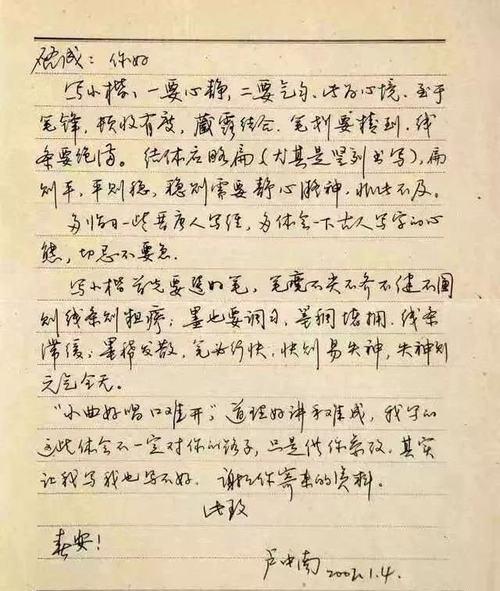 硕诚：你好
写小楷，一要心静，二要气匀、此为心境。至于
笔锋，顿收有度，藏露结合、笔划要精到，线
条要绝活。结体应略扁（尤其是竖列书写），扁
则平，平则稳，稳则需要静心凝神，非此不及。
多临习一些晋唐人写经，多体会一下古人写字的心
态，切忌不要急。
写小楷首先要选好笔，笔度不尖不齐不健不圆
则线条则粗疼；墨也要调匀，墨稠堵拥，线条
滞缓；墨稀发散，笔必行快，快则易失神，失神则
元气全无。
“小曲好唱口难开”；道理好讲手难成，我写的
这些体会不一定对你的路子，只是供你参改。其实
让我写我也写不好。谢谢你寄来的资料。
此致
春安！
卢中南 2002.1.4.